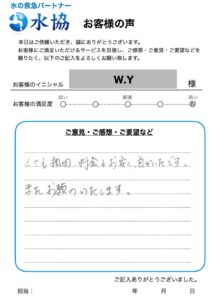 水の救急パートナー
水協 お客様の声
本日はご依頼いただき、誠にありがとうございます。
お客様にご満足いただけるサービスを目指し、ご感想・ご意見・ご要望などを
賜りたく、以下のご記入をよろしくお願い致します。
お客様のイニシャル W.Y 様
低い 普通 高い
お客様の満足度
ご意見・ご感想・ご要望など
とても親切、料金もお安く、良かったです。
またお願いいたします。
ご記入ありがとうございました。
担当： 年 月 日